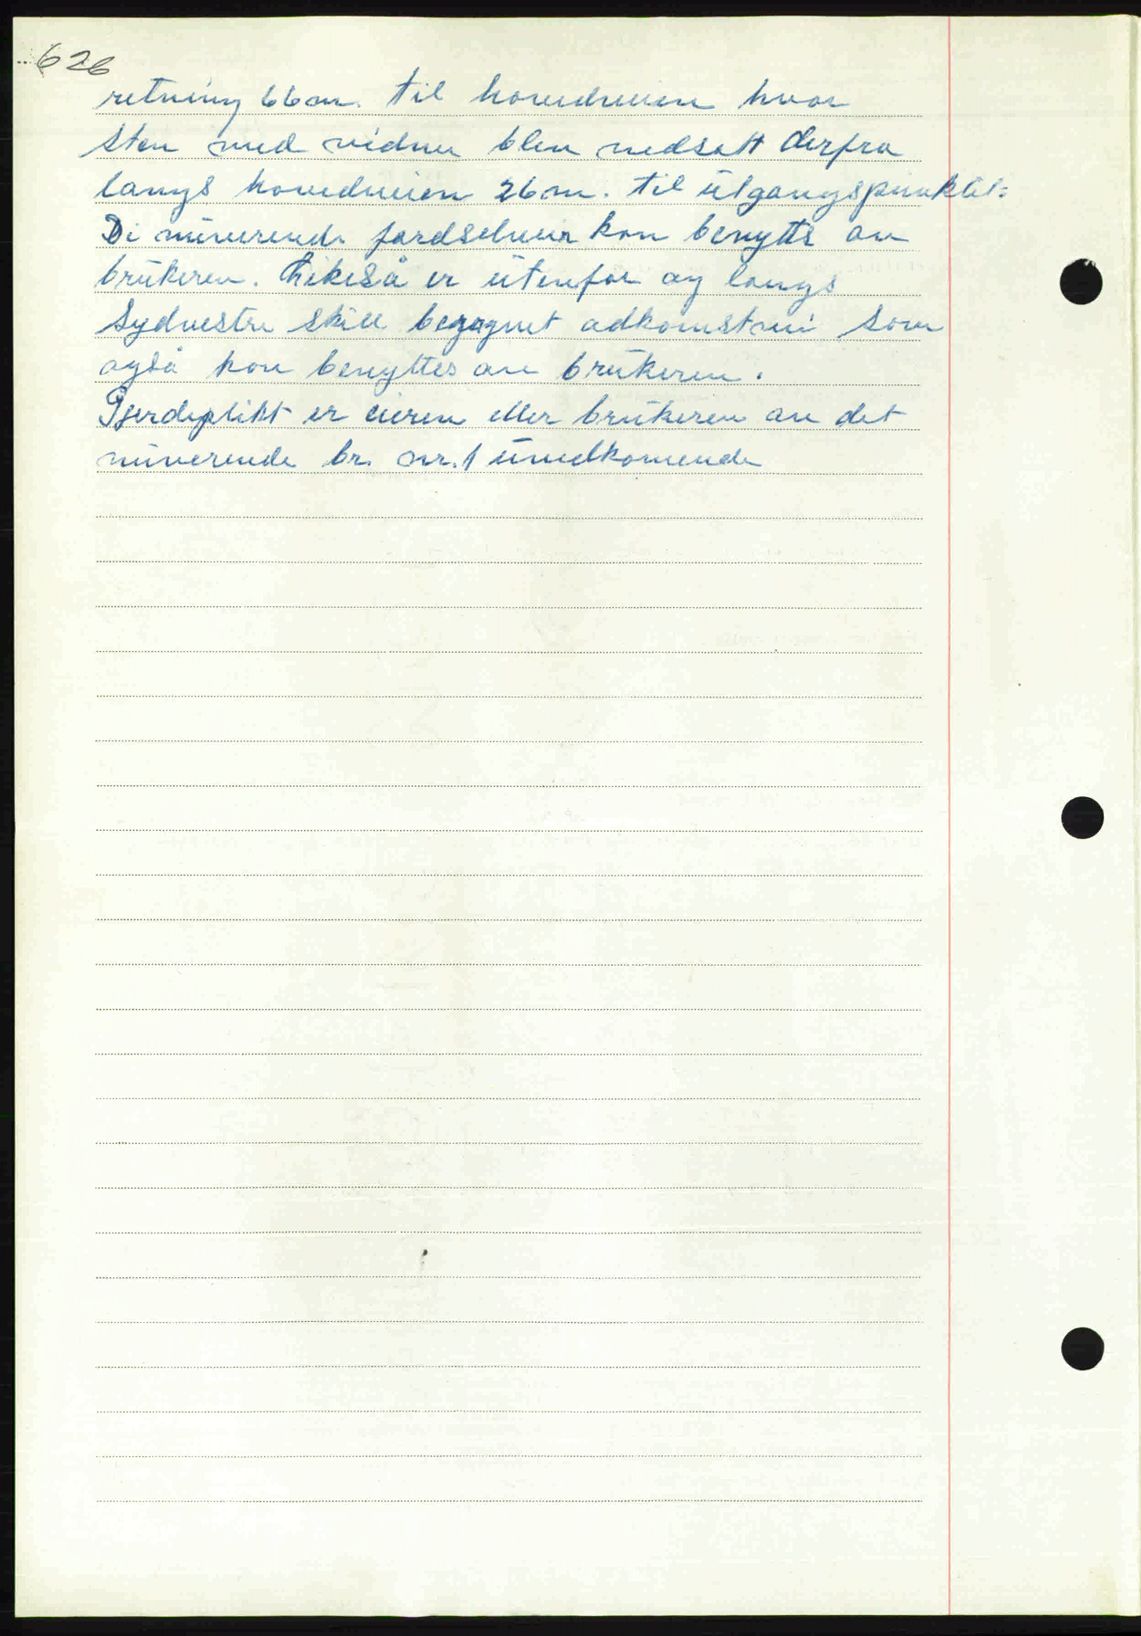 626
retning 66 m. til hovedveien hvor
sten med vidner blev nedsatt derfra
langs hovedveien 26 m. til utgangspunktet:
De nuverende færdselveier kan benyttes av
brukeren. Likeså er utenfor og langs
Sydvestre skill begagnet adkomstvei som
også kan benyttes av brukeren.
Gjerdeplikt er eieren eller brukeren av det
nuverende br. nr. 1 uvedkomende